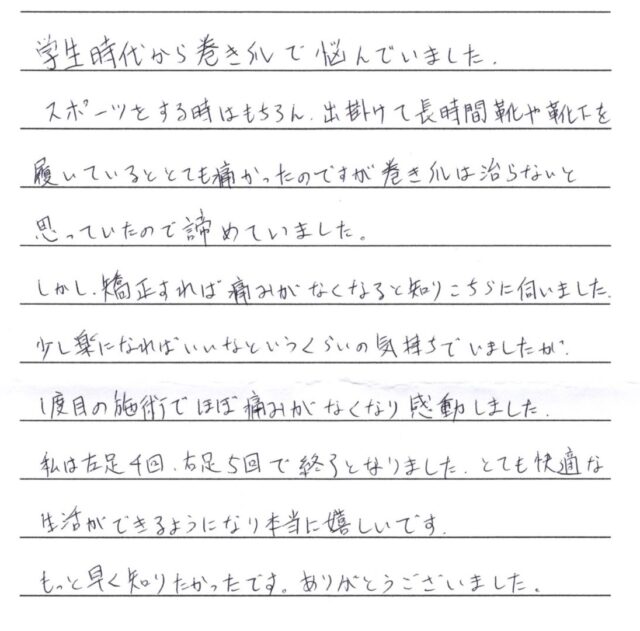 学生時代から巻き爪で悩んでいました。
スポーツをする時はもちろん、出掛けて長時間靴や靴下を
履いているととても痛かったのですが巻き爪は治らないと
思っていたので諦めていました。
しかし、矯正すれば痛みがなくなると知りこちらに伺いました。
少し楽になればいいなというくらいの気持ちでいましたが、
1度目の施術でほぼ痛みがなくなり感動しました。
私は左足4回、右足5回で終了となりました。とても快適な
生活ができるようになり本当に嬉しいです。
もっと早く知りたかったです。ありがとうございました。